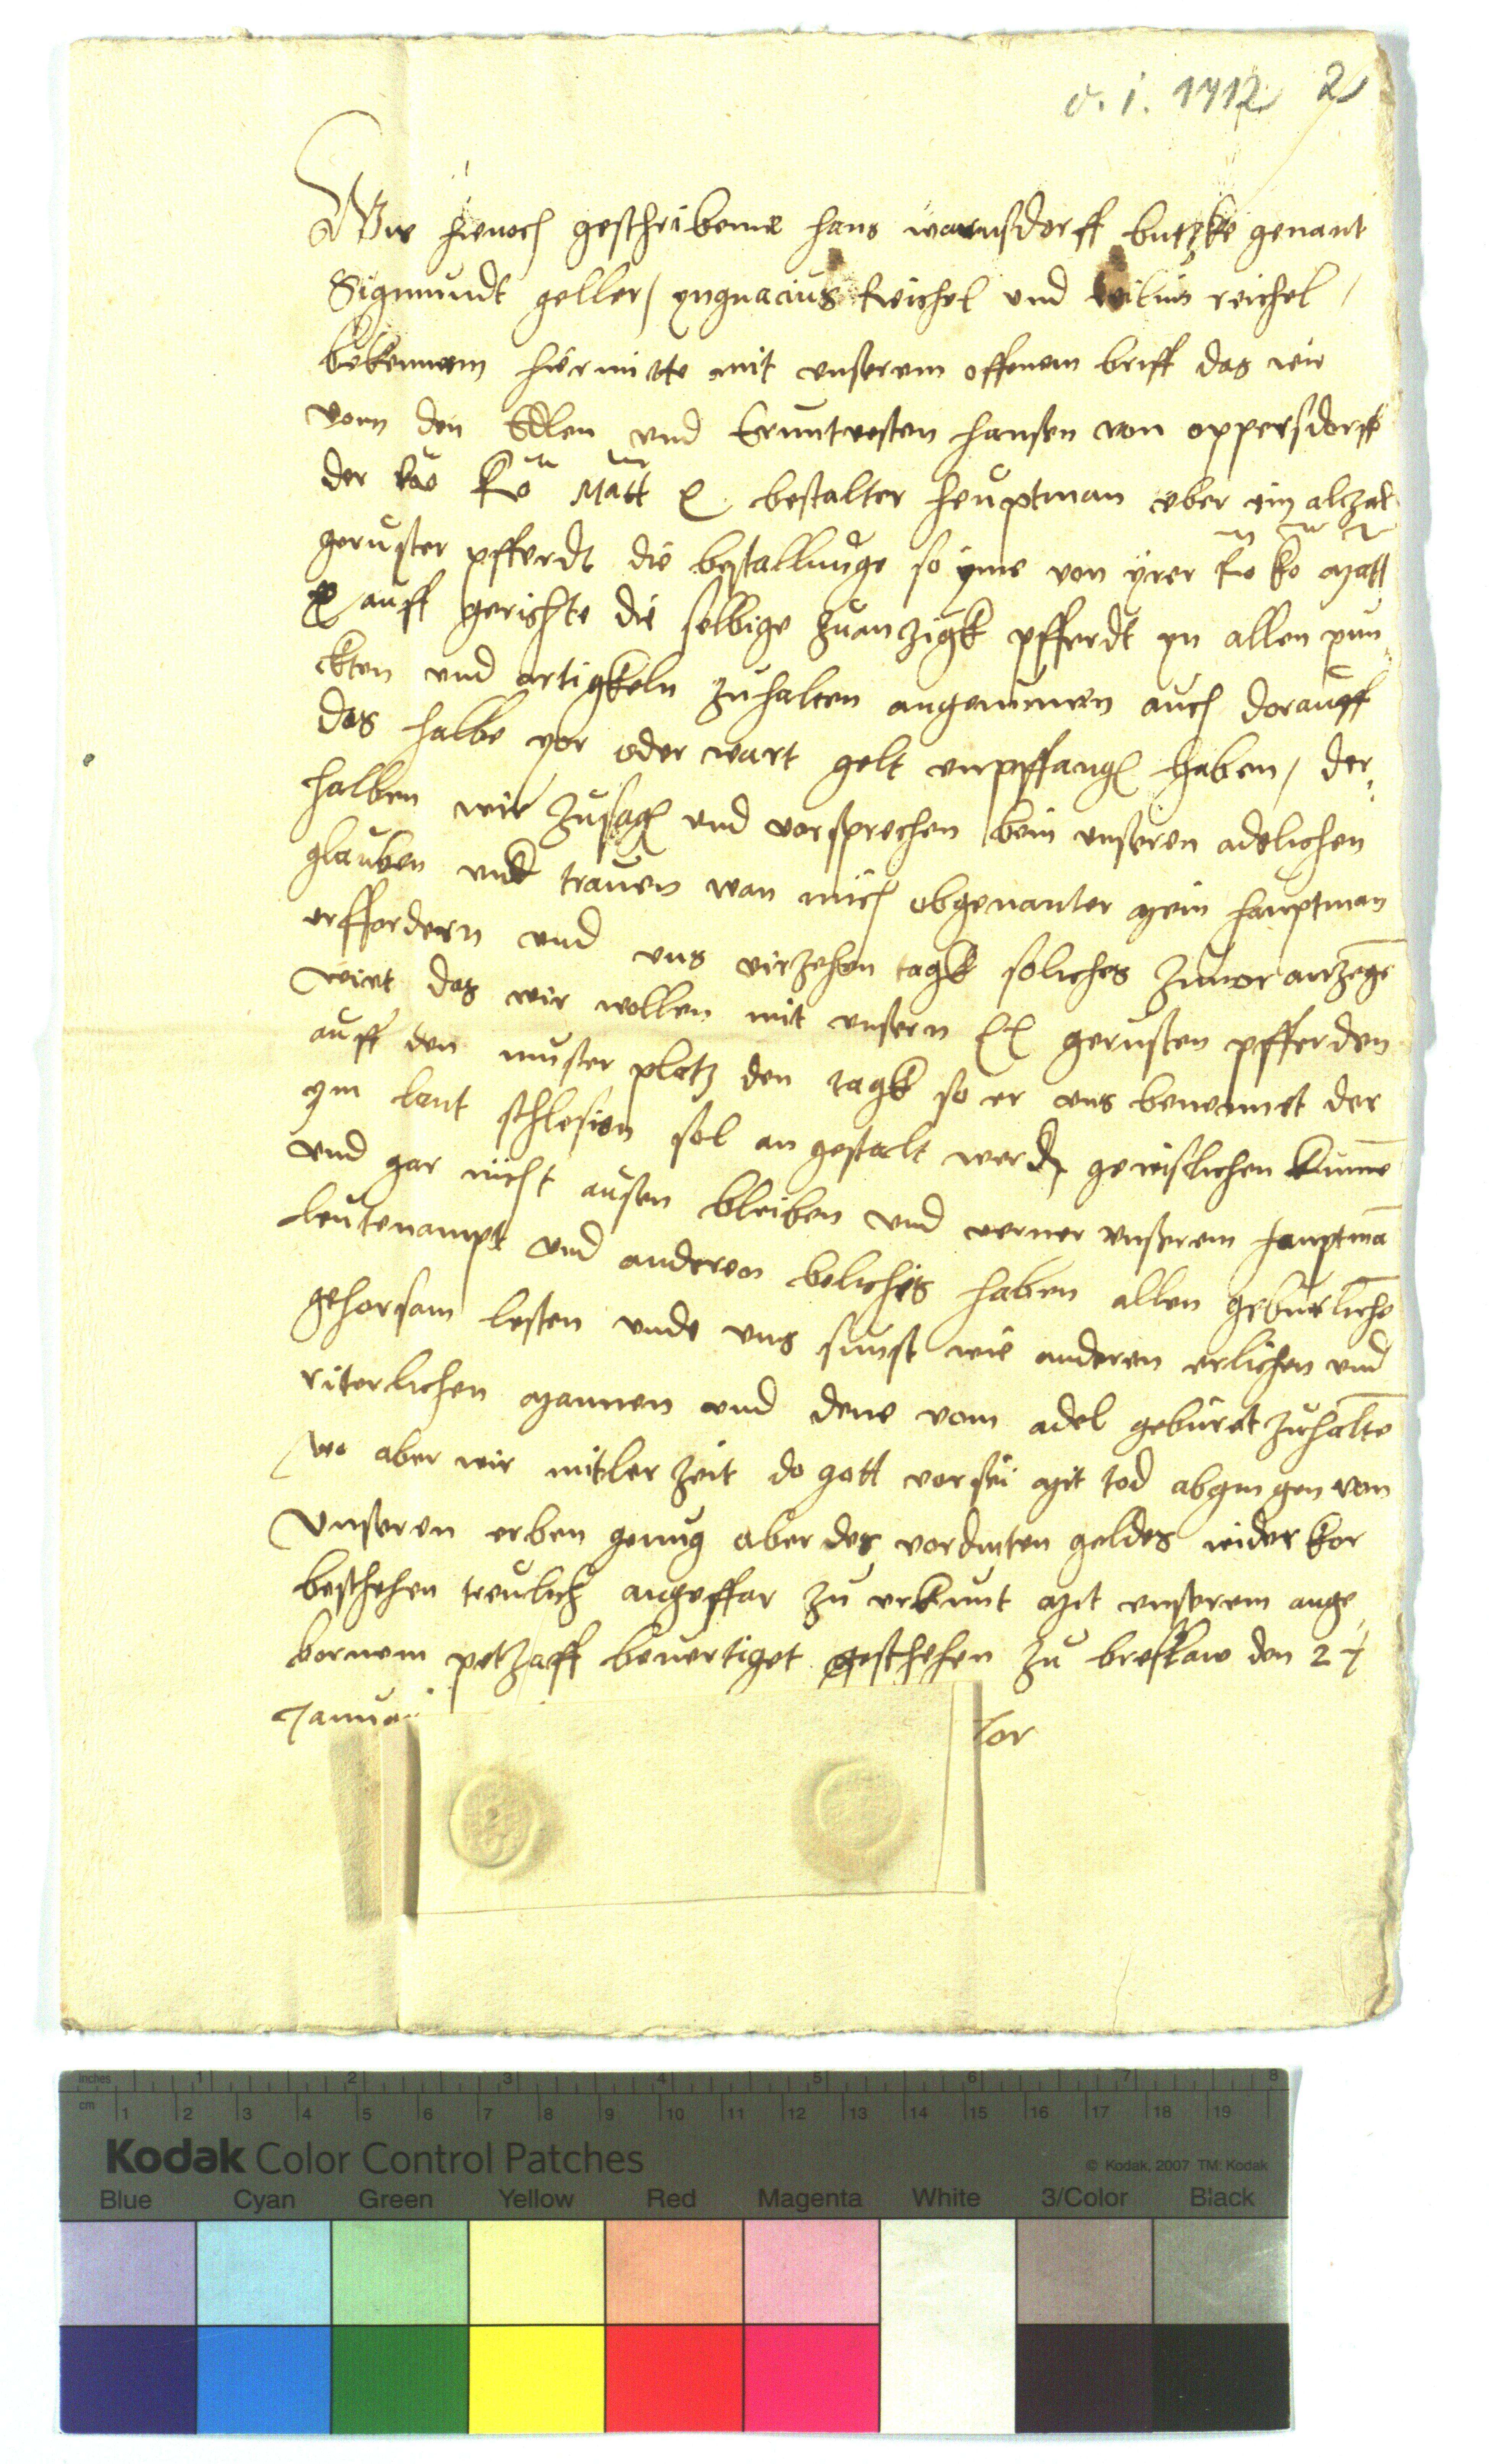 v. i. 1712 2
Wir hienoch geschribenne hans warnsdorff butzke genant
Sigmundt geller / yngnacius Reichel und reichel /
bekennenn hiermitte mit unserem offenem briff das wir
vonn den Edlen und Ernntvesten hansen von oppersdorff
der Ro Ko Matt bestalter heuptman uber ein alzal
geruster pfferdt die bestallunge so yme von yrer Ro Ko matt
auff gerichte die selbige zuanzigk pfferdt yn allen pun
ckten und artigkeln zuhalten angenummen auch dorauff
das halbe yor oder wart gelt enpffang haben / der
halben wir zusag und vorsprechen bein unseren adelichen
glauben und trauen wan mich obgenanter mein hauptman
erffordern und uns virzehen tagk soliches zuuor anzege
wirt das wir wollen mit unsern XX gerusten pfferden
auff den muster platz den tagk so er uns benennet der
ym lant schlesien sol an gestalt werd gewislichen kumme
und gar nicht ausen bleiben und verner unserem hauptma
leutenampt und anderen belichis haben allen geburliche
gehorsam lesten unde uns sunst wie anderen erlichen und
riterlichen mannen und dene vom adel geburet zuhalte
wo aber wir mitler zeit do gott vor sei mit tod abgingen von
Unseren erben genug aber des vordinten geldes widerkor
beschehen treulich angeffar zu urkunt mit unserem ange
bornem petzaff beuertiget geschehen zu breslaw den 24
Januar
Inches 1 2 3 4 5 6 7 8
cm 1 2 3 4 5 6 7 8 9 10 11 12 13 14 15 16 17 18 19
Kodak Color Control Patches © Kodak, 2007 TM: Kodak
Blue Cyan Green Yellow Red Magenta White 3/Color Black